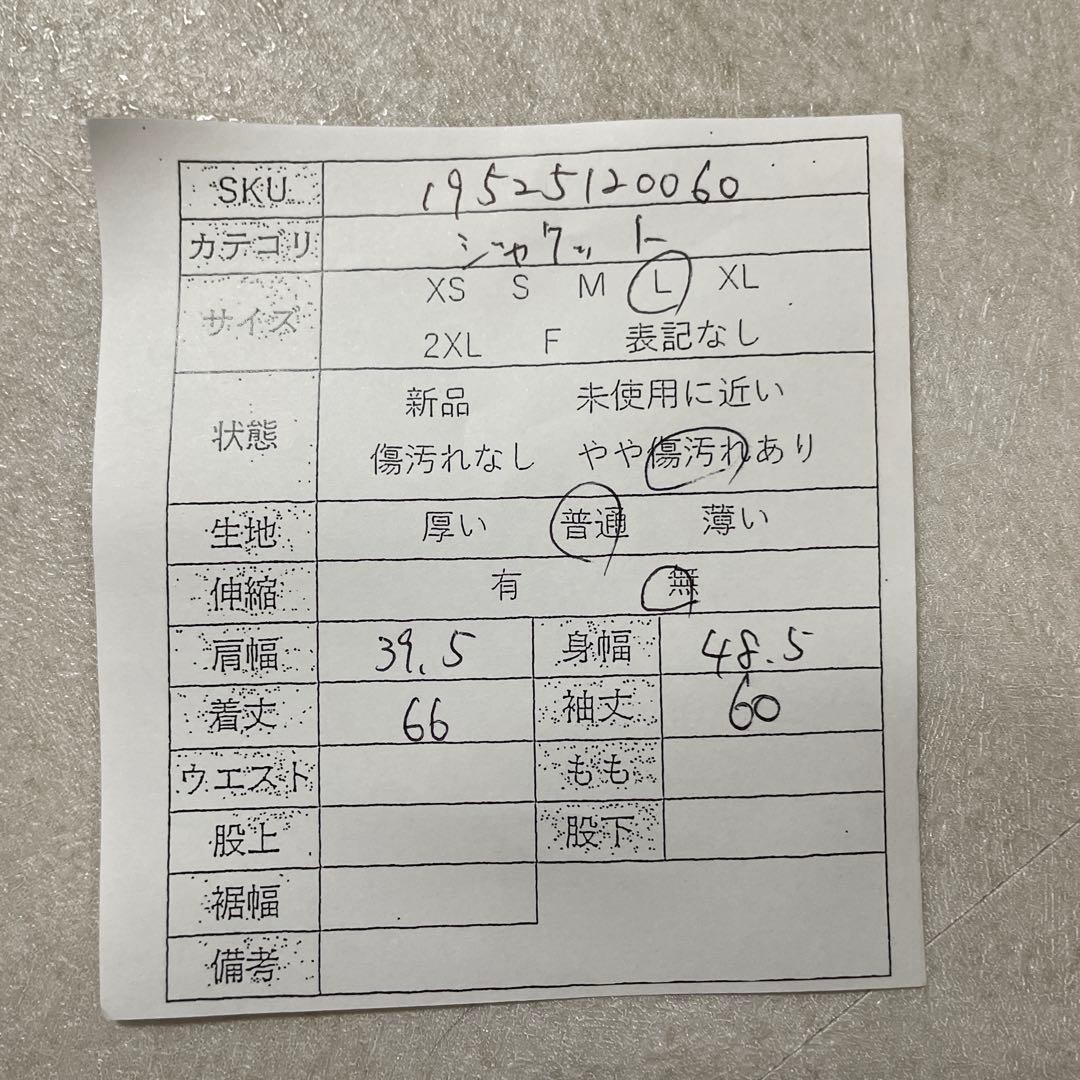 SKU 19525120060
カテゴリ ジャケット
サイズ XS S M L XL
2XL F 表記なし
状態 新品 未使用に近い
傷汚れなし やや傷汚れあり
生地 厚い 普通 薄い
伸縮 有 無
肩幅 39.5 身幅 48.5
着丈 66 袖丈 60
ウエスト もも
股上 股下
裾幅
備考